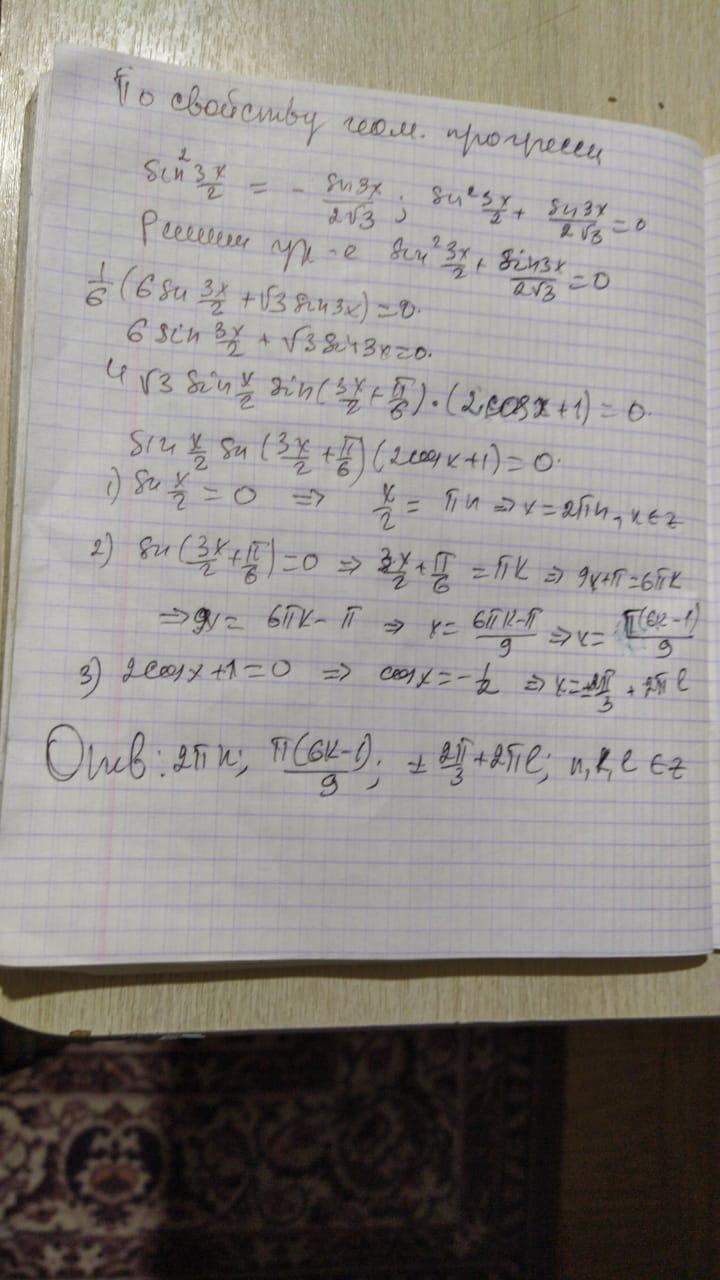 По свойству геом. прогресси
sin² 3x/2 = - sin3x/2√3; sin² 3x/2 + sin3x/2√3 = 0
Решим ур-е sin² 3x/2 + sin3x/2√3 = 0
1/6 (6 sin 3x/2 + √3 sin3x) = 0.
6 sin 3x/2 + √3 sin3x = 0.
4√3 sin x/2 sin(3x/2 + π/6)·(2cosx+1) = 0.
sin x/2 sin (3x/2 + π/6)(2cosx+1) = 0.
1) sin x/2 = 0 ⇒ x/2 = πn ⇒ x = 2πn, n ∈ z
2) sin(3x/2 + π/6) = 0 ⇒ 3x/2 + π/6 = πk ⇒ 9x+π = 6πk
⇒ 9x = 6πk - π ⇒ x = 6πk-π/9 ⇒ x = π(6k-1)/9
3) 2cosx+1 = 0 ⇒ cosx = -1/2 ⇒ x = ±2π/3 + 2πl
Отв: 2πn; π(6k-1)/9; ± 2π/3 + 2πl; n, k, l ∈ z